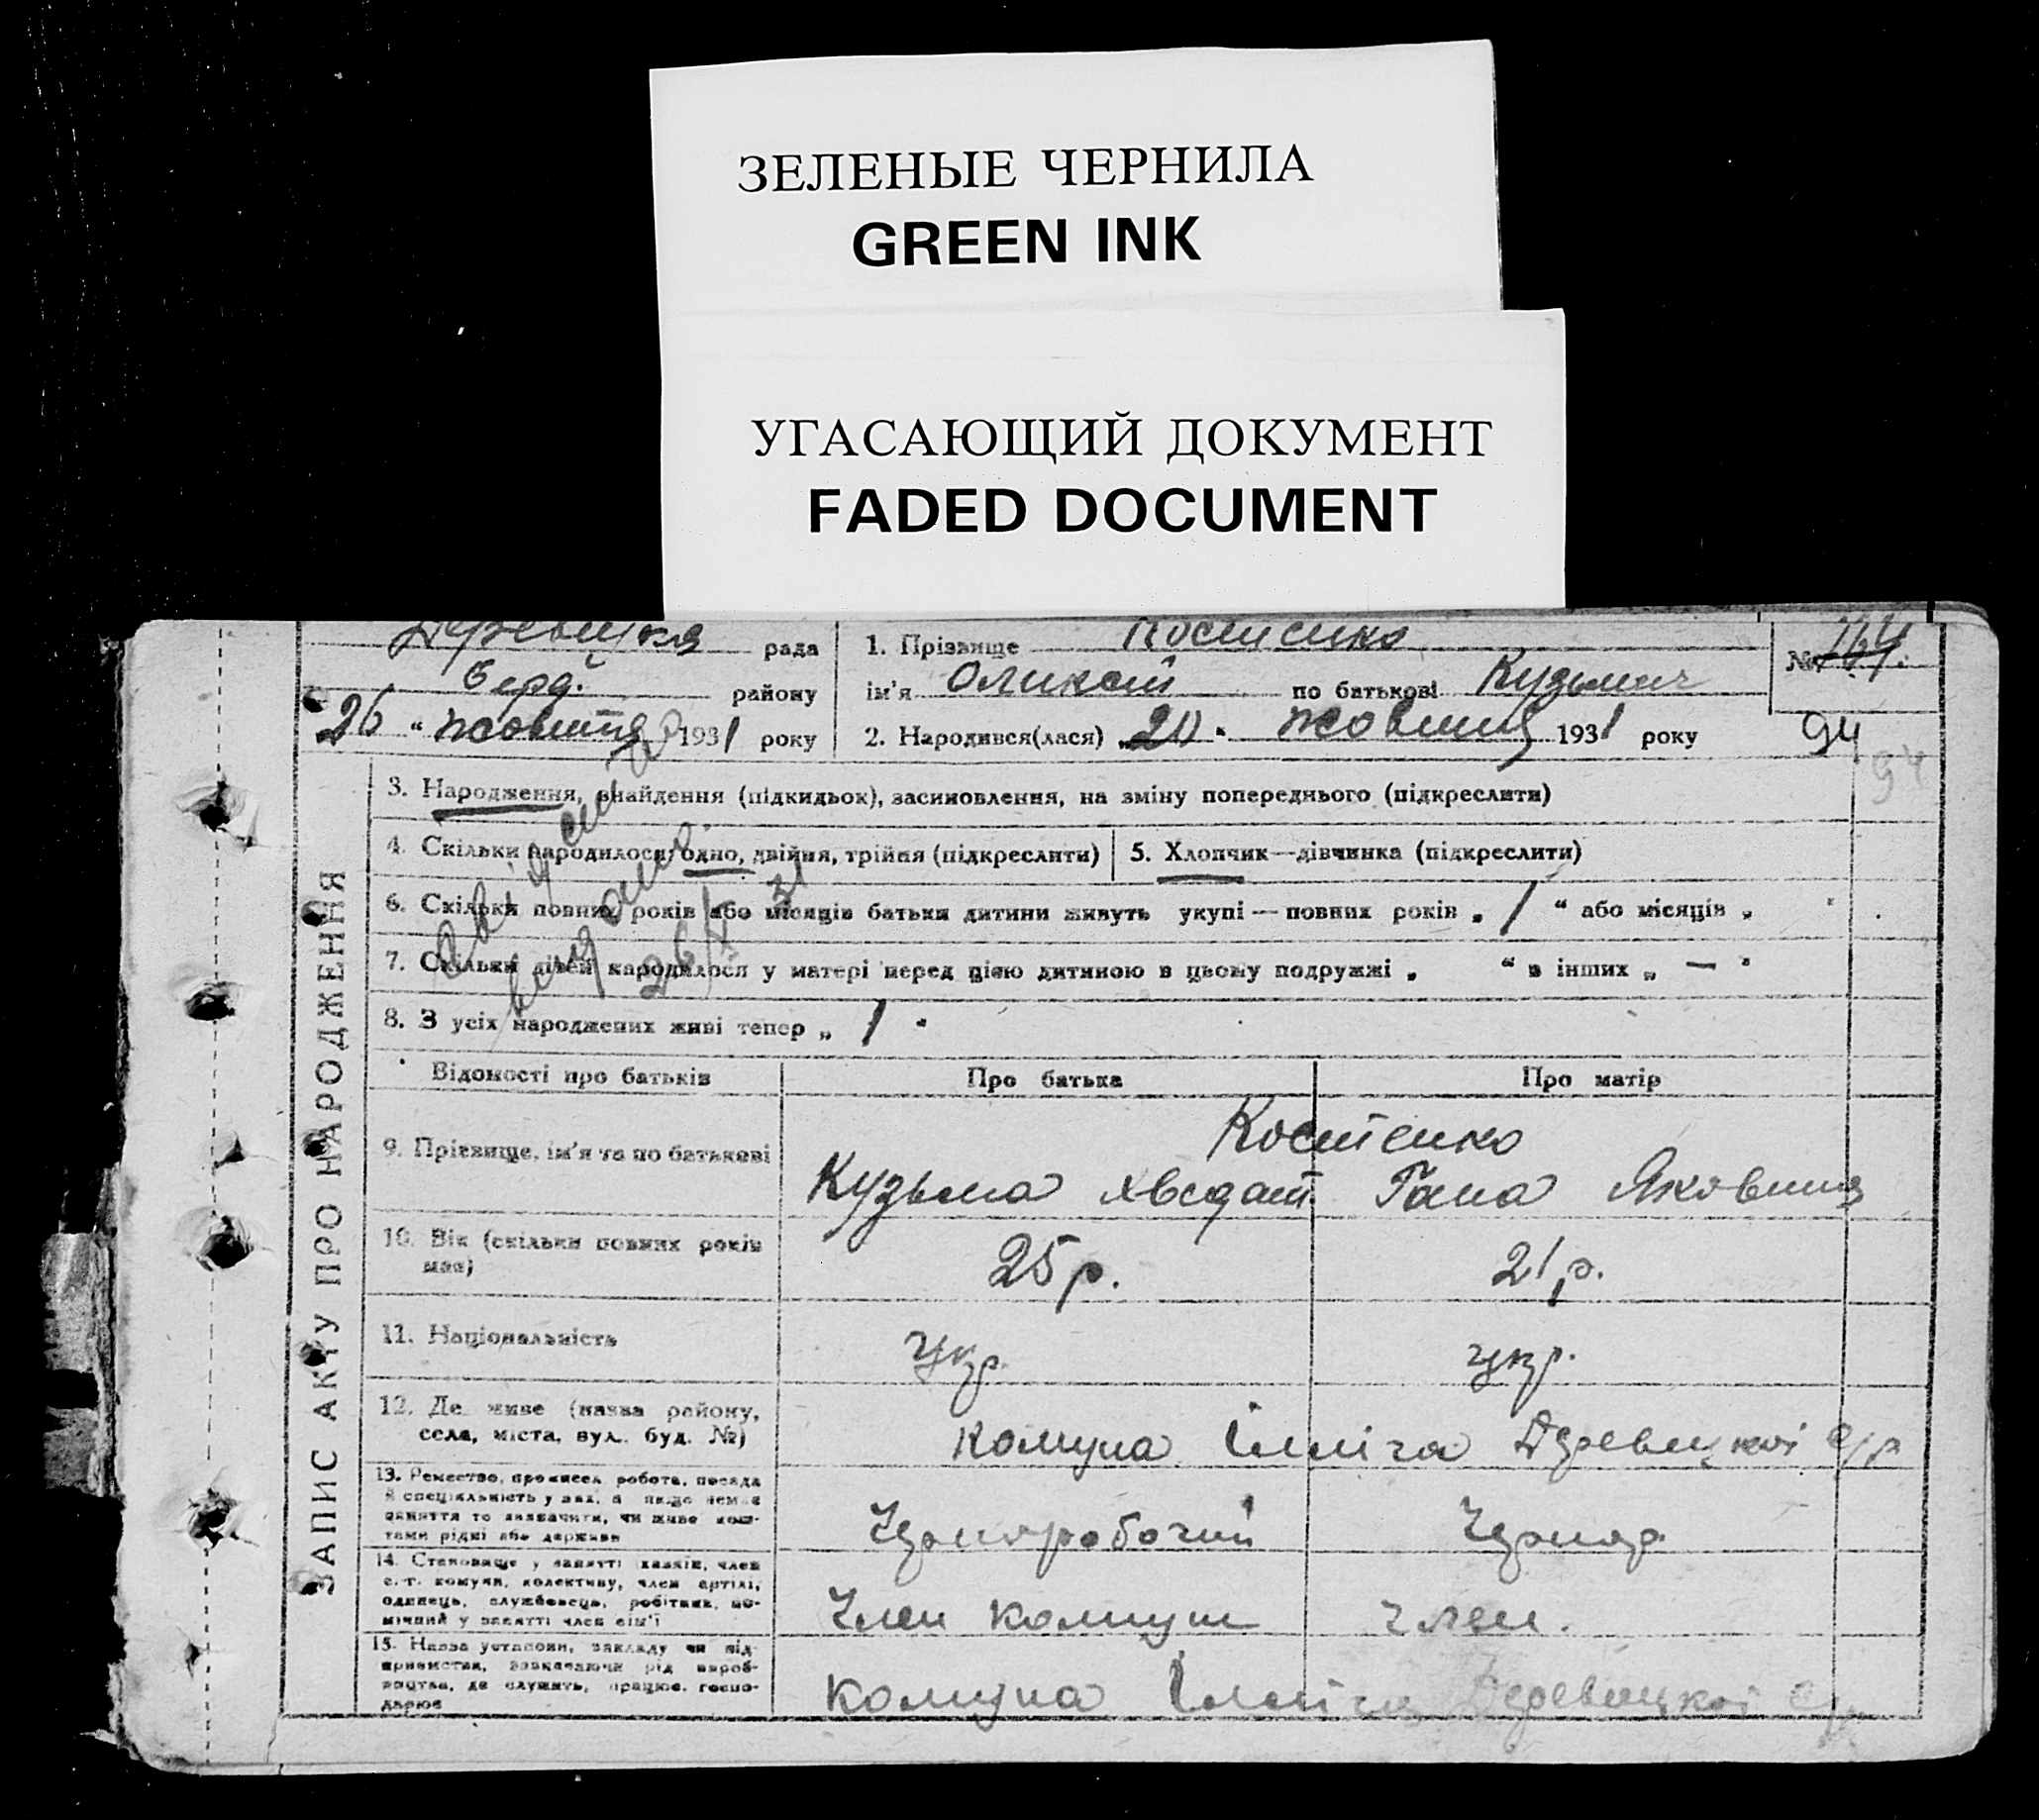 ЗЕЛЕНЫЕ ЧЕРНИЛА
GREEN INK
УГАСАЮЩИЙ ДОКУМЕНТ
FADED DOCUMENT
Деревицка рада
Берд. району
26 " жовтня 1931 року
1. Прізвище Костенко
ім'я Оликсій по батькові Кузьмич
2. Народився(лася) „20" жовтня 1931 року
№ 164.
94
94
ЗАПИС АКТУ ПРО НАРОДЖЕННЯ
3. Народження, знайдення (підкидьок), засиновлення, на зміну попереднього (підкреслити)
4. Скільки народилося: одно, двійня, трійня (підкреслити)
5. Хлопчик—дівчинка (підкреслити)
6. Скільки повних років або місяців батьки дитини живуть укупі—повних років „ 1 " або місяців „ "
7. Скільки дітей народилося у матері перед цією дитиною в цьому подружжі „ " в інших „ — "
8. З усіх народжених живі тепер „ 1 "
26/X 31
Відомості про батьків
Про батька
Про матір
9. Прізвище, ім'я та по батькові
Костенко
Кузьма Хведот.
Гана Яковина
10. Вік (скільки повних років має)
25 р.
21 р.
11. Національність
Укр.
укр.
12. Де живе (назва району, села, міста, вул. буд. №)
Комуна Ілліча Деревицкої с/р
13. Ремество, промисел, робота, посада й спеціяльність у них, а якщо немає заняття то зазначити, чи живе коштами рідні або держави
Чорноробочий
Чорнор.
14. Становище у занятті: хазяїн, член с.-г. комуни, колективу, член артілі, одинець, службовець, робітник, помічний у занятті член сім'ї
Член комуни
член.
15. Назва установи, закладу чи підприємства, зазначаючи рід виробництва, де служить, працює, господарює
Комуна Ілліча Деревицкої с/р